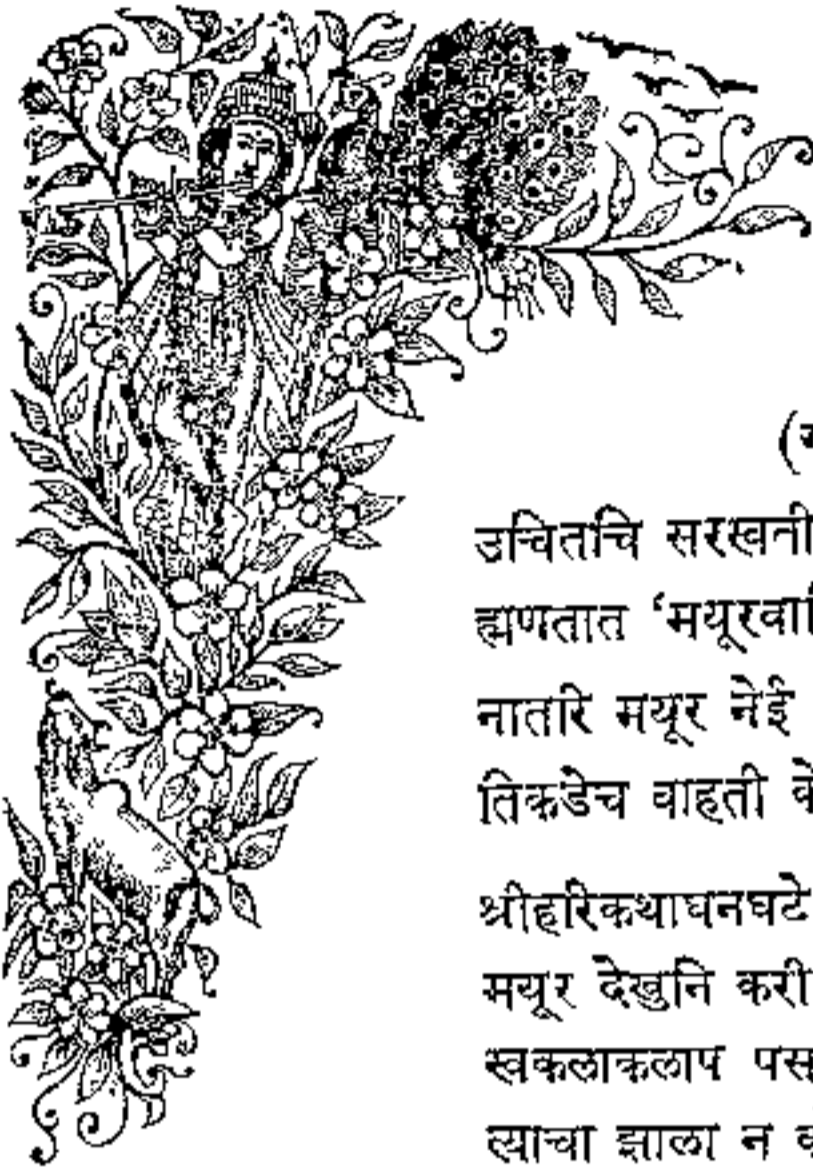 उचितचि सरस्वती
ह्मणतात ‘मयूरवा
नातरि मयूर नेई
तिकडेच वाहती
श्रीहरिकथाघनघटे
मयूर देखुनि करी
स्वकलाकलाप पस
त्याचा झाला न